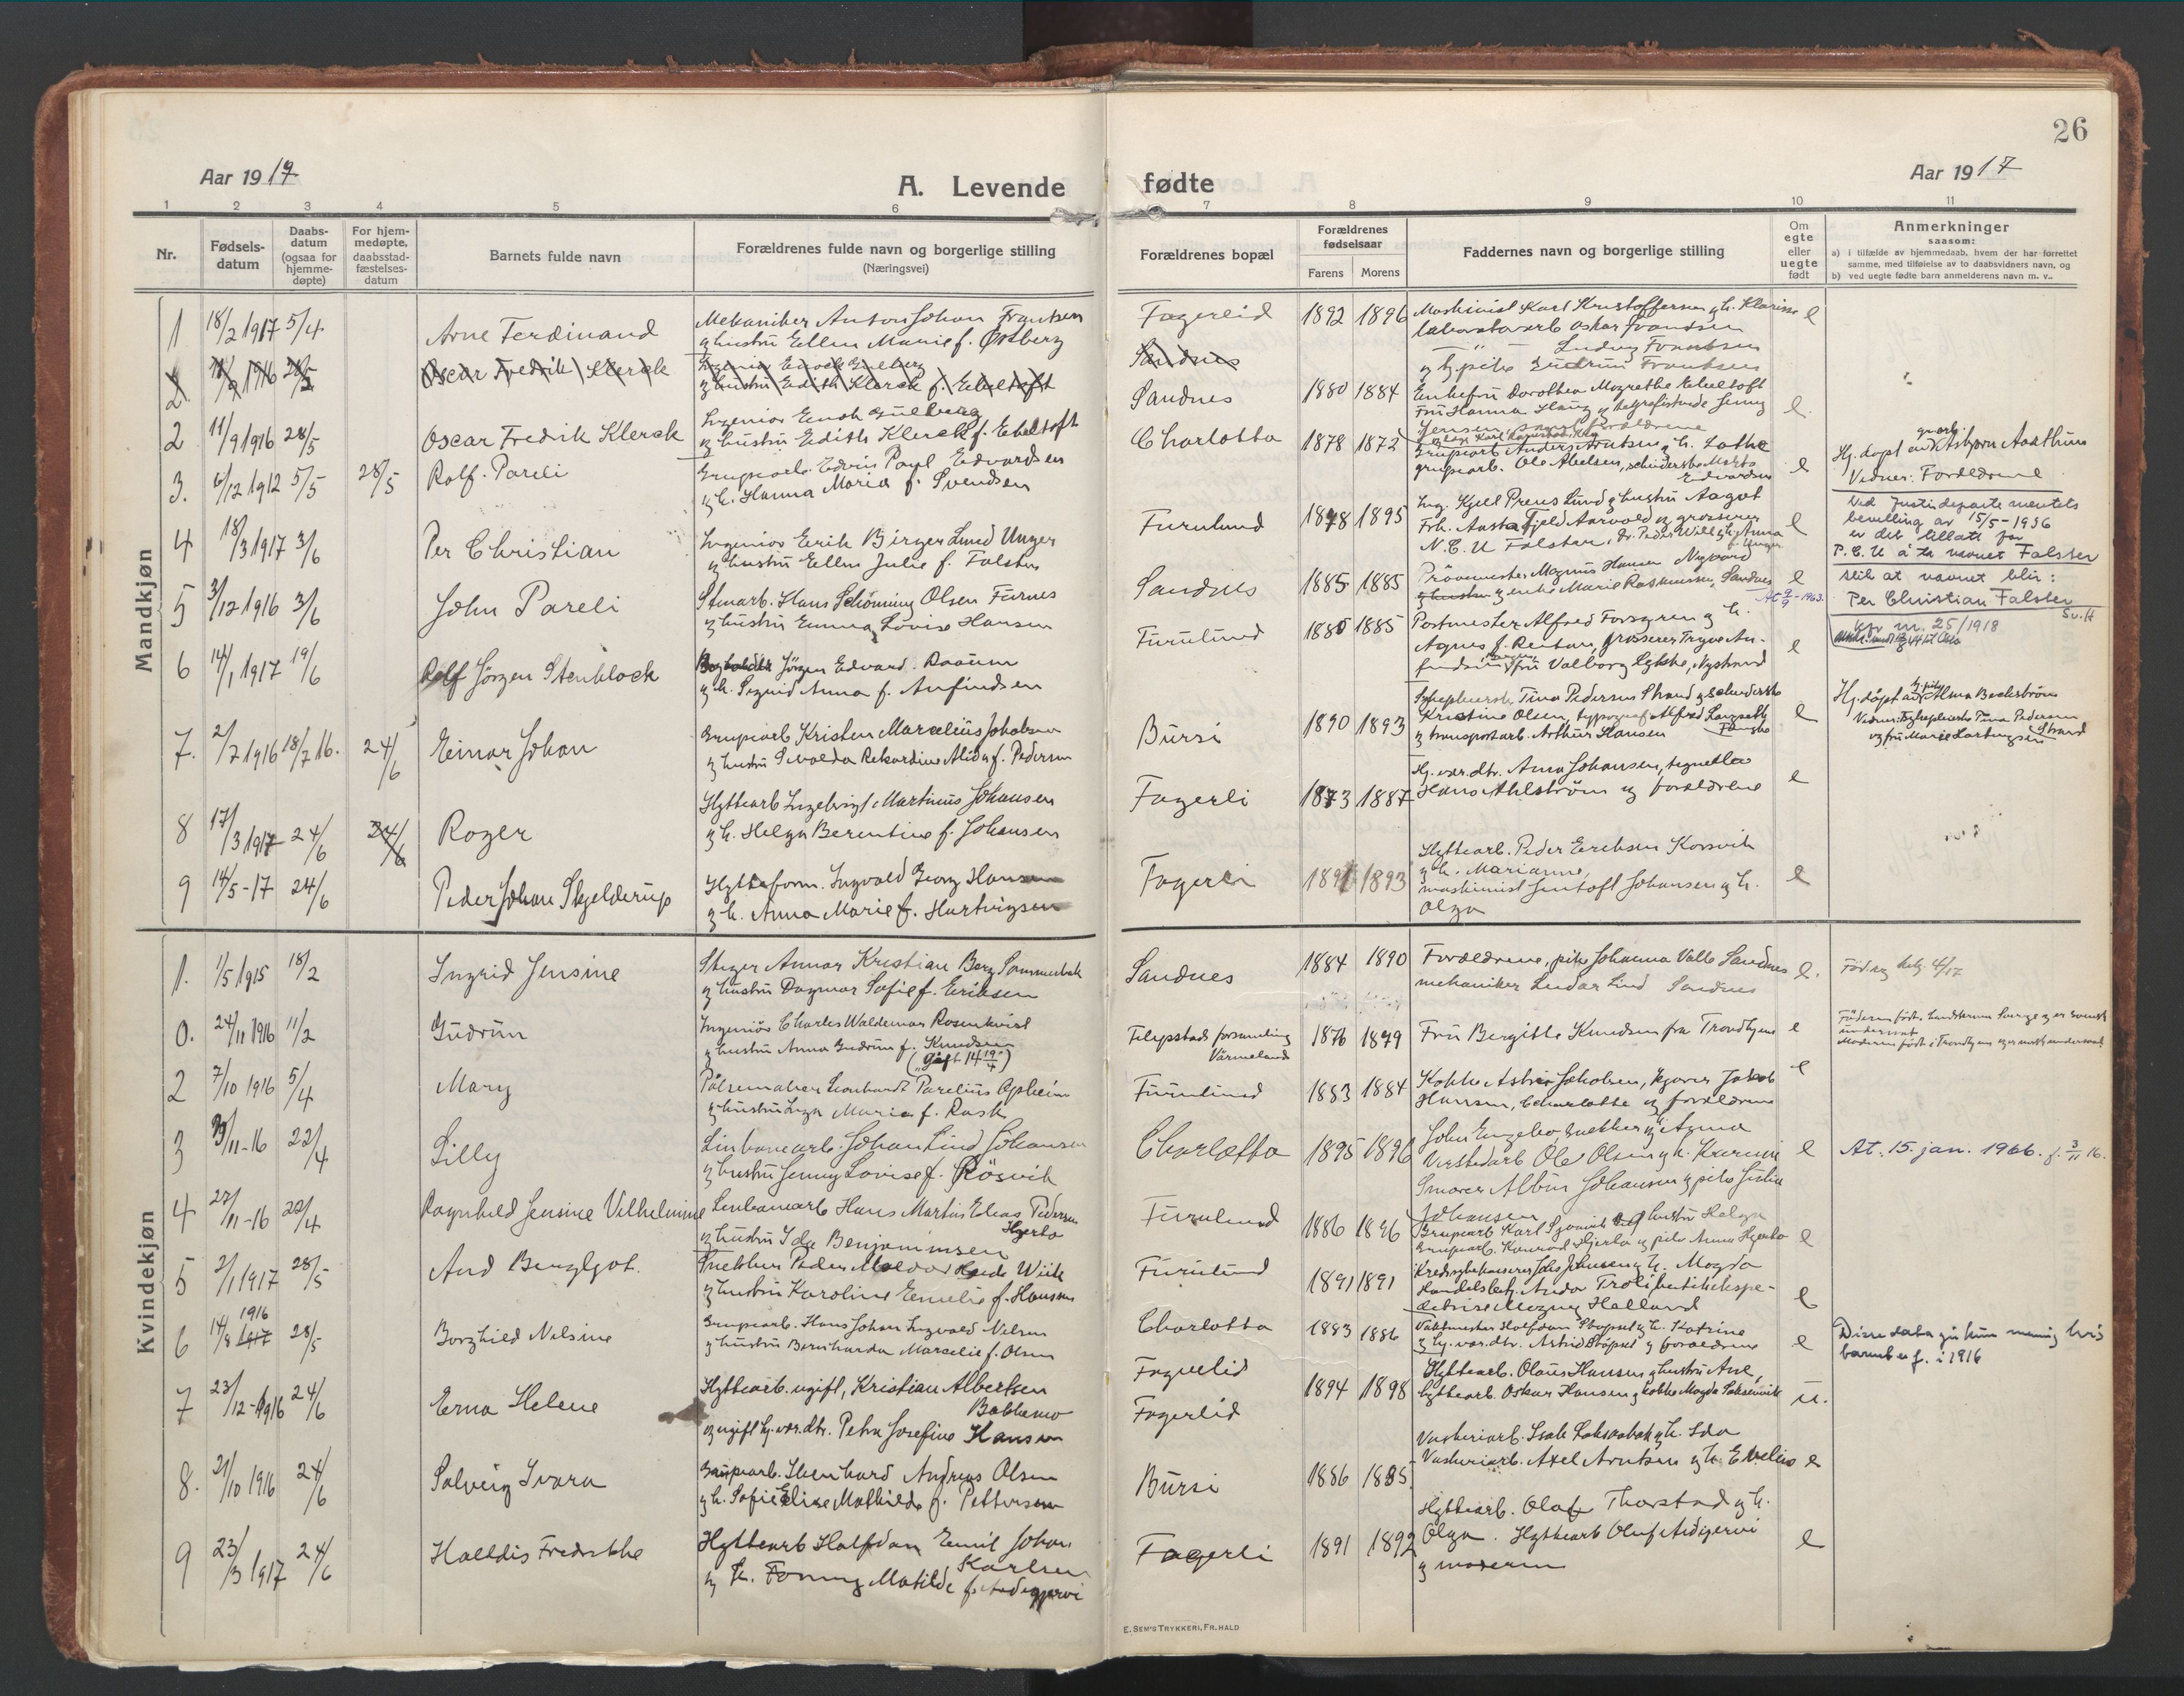 26
Aar 1917
A. Levende fødte
Aar 1917
1 2 3 4 5 6 7 8 9 10 11
Nr.
Fødsels-
datum
Daabs-
datum
(ogsaa for
hjemme-
døpte)
For hjem-
medøpte,
daabsstad-
fæstelses-
datum
Barnets fulde navn
Forældrenes fulde navn og borgerlige stilling
(Næringsvei)
Forældrenes bopæl
Forældrenes
fødselsaar
Farens Morens
Faddernes navn og borgerlige stilling
Om
egte
eller
uegte
født
Anmerkninger
saasom:
a) i tilfælde av hjemmedaab, hvem der har forrettet
samme, med tilføielse av to daabsvidners navn, og
b) ved uegte fødte barn anmelderens navn m. v..
Mandkjøn
1 18/2 1917 5/4 Arne Ferdinand
Mekaniker Anton Johan Frantsen
og hustru Ellen Marie f. Østberg
Fagerlid 1892 1896
Maskinist Karl Kristoffersen og h. Klarisse
Oskar Frantsen
Ludvig Frantsen
e
2 1916 28/5 Oscar Fredrik Klerck
og hustru Edith Klerck f. Ebeltoft
Sandnes
2 11/9 1916 28/5 Oscar Fredrik Klerck
Ingeniør Enok Gulberg
og hustru Edith Klerck f. Ebeltoft
Sandnes 1880 1884
Enkefru Dorothea Magrethe Ebeltoft
Fru Hanna Haug og telegrafistinde Jenny
Jensen, samt forældrene
e
3. 6/12 1912 5/5 28/5 Rolf Pareli
Grupearb. Edvin Paul Edvardsen
og h. Hanna Maria f. Svendsen
Charlotta 1878 1872
Grupearb Anders Arntsen og h. Lothe
gruparb. Ole Abelsen, schiderske Marta
Edvardsen
e
Hj. døpt av Asbjørn Aakthun
Vidner: Forældrene
4 18/3 1917 3/6 Per Christian
Ingeniør Erik Birger Lund Unger
og hustru Ellen Julie f. Falsten
Furulund 1878 1895
Ing. Kjell Preus Lund og hustru Aagot
Frk. Aasta Fjeld Aarvold og grosserer
N. C. U Falsten,
e
Ved Justisdepartementets
bevilling av 15/5-1936
er det tillatt for
P. C. U å ta navnet Falster
slik at navnet blir:
Per Christian Falster
5 3/12 1916 3/6 John Pareli
Stenarb. Hans Schönning Olsen Furnes
og hustru Emma Lovise Hansen
Sandnes 1885 1885
Prøvemester Magnus Hansen Nygaard
og enke Marie Rasmussen, Sandnes
e
At 9/9-1963.
nr. 25/1918
6 14/1 1917 19/6 Rolf Jörgen Stenklock
Jörgen Edvard Raaum
og h. Signid Anna f. Anfindsen
Furulund 1885 1885
Postmester Alfred Forsgren og h.
Agnes f. Reutan, grosserer Trygve An-
findsen, fru Valborg Lykke, Nystrand
e
7. 2/7 1916 18/7 16. 24/6 Einar Johan
Grupearb Kristen Marcelius Jakobsen
og hustru Sevalda Rekardine Alida f. Pedersen
Bursi 1890 1893
Sykepleierske Tina Pedersen Strand og schiderske
Kristine Olsen, typograf Alfred
og transportarb. Arthur Hansen
e
Hj. døpt av Alma Beckström
Vidner: Sykepleierske Tina Pedersen
Strand
og fru Marie Hartvigsen
8 17/3 1917 24/6 24/6 Roger
Hyttearb Ingebrigt Martinus Johansen
og h. Helga Berentine f. Johansen
Fagerli 1873 1887
Hj. vær. dtr. Anna Johansen, tegnelev
Hans Ahlström og forældrene
e
9 14/5-17 24/6 Peder Johan Skjelderup
Hytteform. Ingvald Georg Hansen
og h. Anna Marie f. Hartvigsen
Fagerli 1891 1893
Hyttearb. Peder Eriksen Korsvik
og h. Marianne,
maskinist Jentoft Johansen og h.
Olga
e
Kvindekjøn
1. 1/5 1915 18/2 Ingrid Jensine
Stiger Annar Kristian Berg Sommerbak
og hustru Dagmar Sofie f. Eriksen
Sandnes 1884 1890
Forældrene, pike Johanna Valle Sandnes
mekaniker Leidar Lind Sandnes
e.
0. 24/11 1916 11/2 Gudrun
Ingeniør Charles Waldemar Rosenkvist
og hustru Anna Gudrun f. Knudsen
(Gift 14 19/4)
Filepstads forsamling
Värmeland
1876 1879
Fru Bergitte Knudsen fra Trondhjem
e
2 7/10 1916 5/4 Mary
Pølsemaker Leonhardt Parelius Opheim
og hustru Inga Maria f. Rask
Furulund 1883 1884
Kokke Astrid Jakobsen, Jakob
Hansen, Charlotte og forældrene
e
3 3/11-16 22/4 Lilly
Linbanearb. Johan Lind Johansen
og hustru Jenny Lovise f. Røsvik
Charlotta 1895 1896
John Engebo, snekker og Agna
Verstedarb Ole Olsen og h. Karine
Smører Albin Johansen og pike Julie
Johansen
e
At. 15. jan. 1966. f. 3/11 16.
4 27/11-16 22/4 Ragnhild Jensine Vilhelmine
Linbanearb Hans Martin Elias Pedersen
Hjerto
og hustru Ida Benjaminsen
Furulund 1886 1896
Gruparb Karl Sjønvik og hustru Helga
Gruparb. Konrad Hjerto og pike Anna Hjerto
e
5 2/1 1917 28/5 Aud Bergljot.
Snekker Peder Meldor Wiik
og hustru Karoline Emelie f. Hansen
Furulund 1891 1891
og h. Magda
Troli butikekspe-
ditrise Magny Halland
e
6 14/8 1916 1917 28/5 Borghild Nilsine
Grupearb. Hans Johan Ingvald Nilsen
og hustru Bernharda Marcelie f. Olsen
Charlotta 1883 1886
Vaktmester Halfdan Støpsel og h. Katrine
og hj. vær. dtr. Astrid Støpsel og forældrene
e
Disse data gir kun mening hvis
barnet er f. i 1916
7 23/12-1916 24/6 Erna Helene
Hyttearb. ugift, Kristian Albertsen
Bakkemo
og ugift hj. vær. dtr. Petra Josefine Hansen
Fagerlid
Fagerlid
1894 1898
Hyttearb. Olaus Hansen og hustru Ane,
hyttearb. Oskar Hansen og kokke Magda Saksenvik
u.
8. 21/10 1916 24/6 Solveig Ivara
Gruparb. Ikenhard Andreas Olsen
og h. Sofie Elise Mathilde f. Pettersen
Bursi 1886 1885
Vaskeriarb. Isak Saksenbak og h. Ida
Vaskeriarb. Axel Arntsen og h. Eveline
e
9 23/3 1917 24/6 Halldis Fredrikke
Hyttearb Halfdan Emil Johan
Karlsen
og h. Fanny Matilde f. Aidijervi
Fagerli 1891 1892
Hyttearb. Olaf Thorstad og h.
Olga. Hyttearb Oluf Aidijervi
og moderen
e
E. SEM'S TRYKKERI, FR.HALD